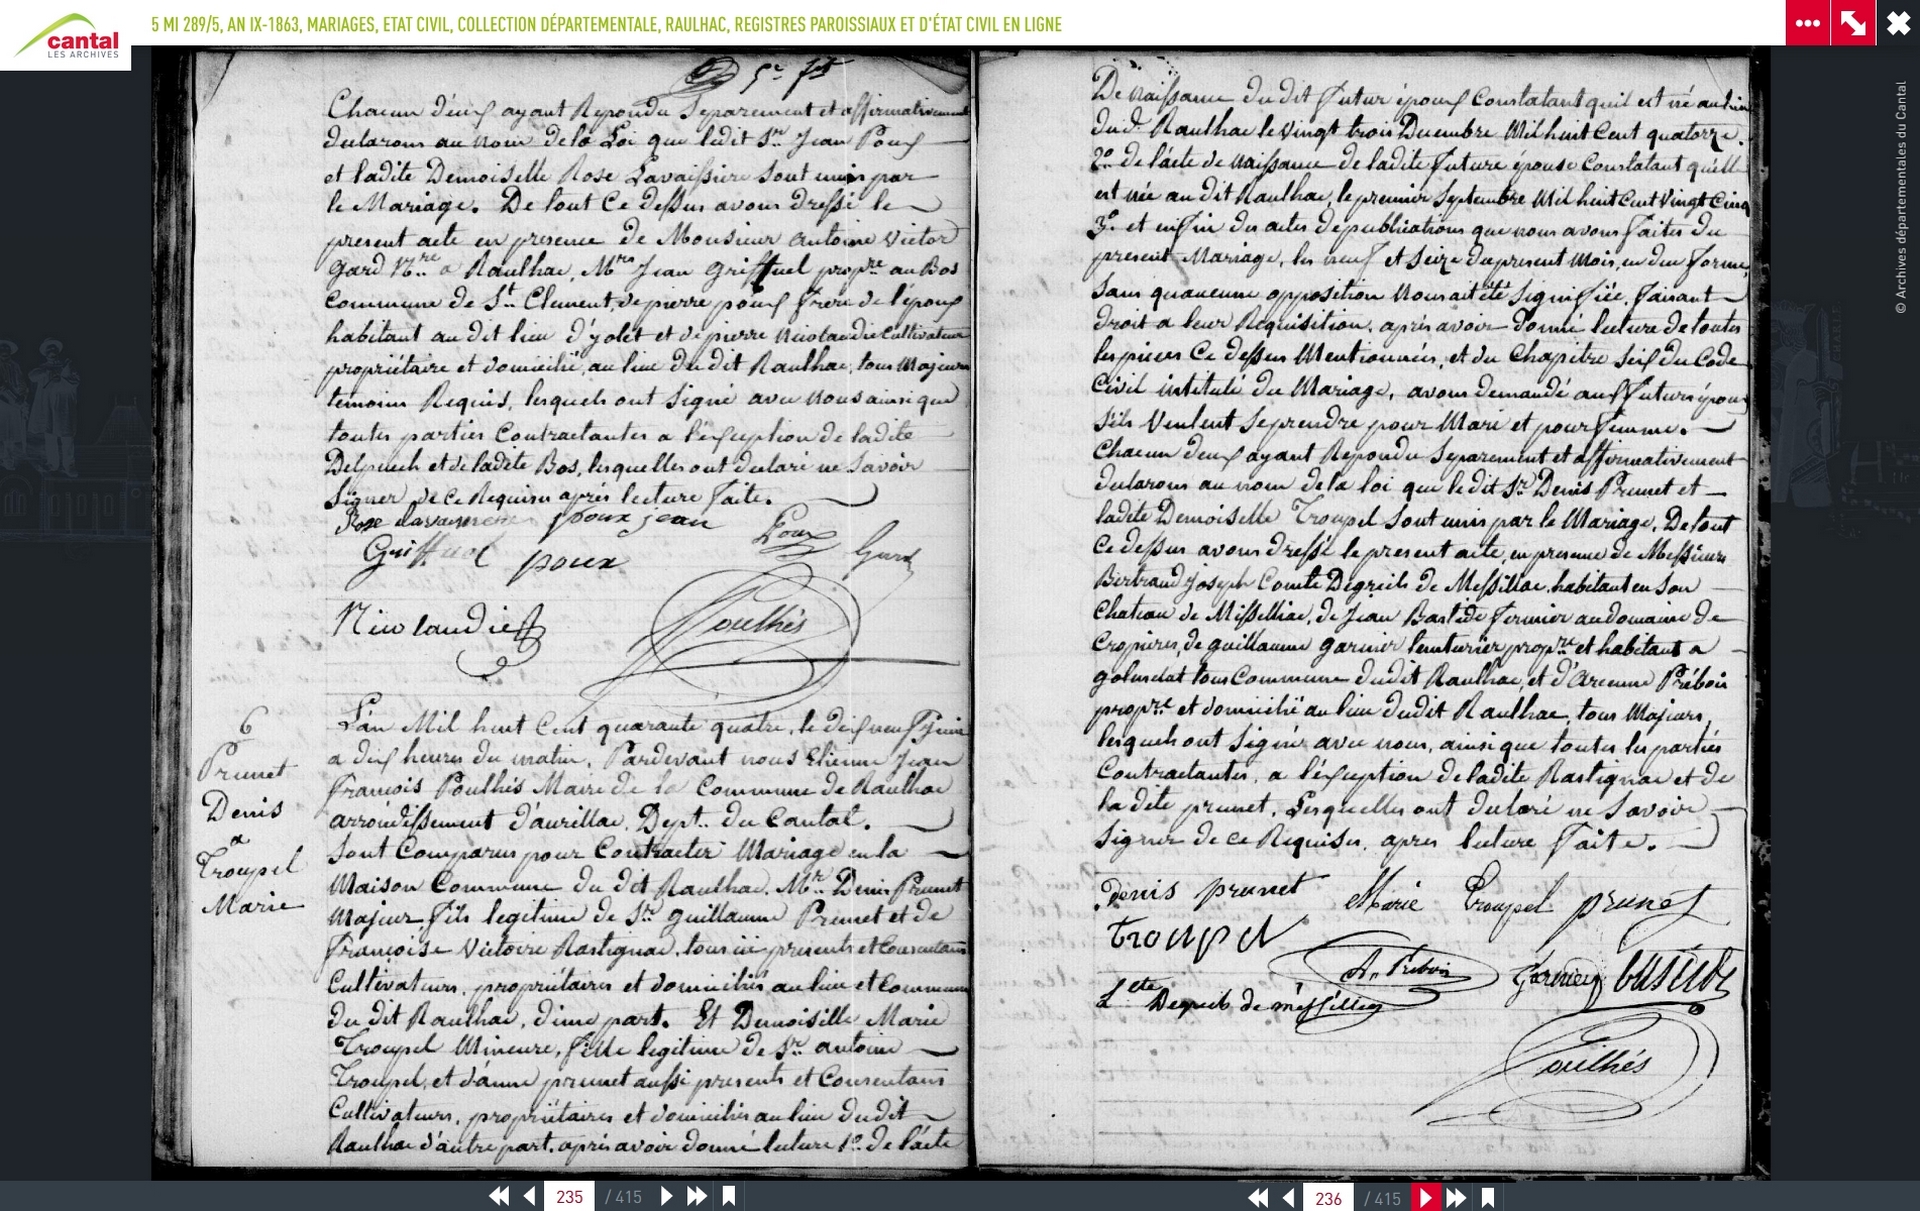 cantal
LES ARCHIVES
5 MI 289/5, AN IX-1863, MARIAGES, ETAT CIVIL, COLLECTION DÉPARTEMENTALE, RAULHAC, REGISTRES PAROISSIAUX ET D'ÉTAT CIVIL EN LIGNE
© Archives départementales du Cantal
Chacun d'eux ayant Repondu Separement et affirmativement
declarons au nom de la Loi que ledit Sr. Jean Poux
et ladite Demoiselle Rose Lavaissiere sont unis par
le Mariage. De tout Ce dessus avons dressé le
present acte en presence de Monsieur antoine Victor
Gard Nre. a Raulhac, Mrs Jean Griffuel propre. au Bos
Commune de St. Clement, de pierre poux frere de l'époux
habitant au dit lieu d'yolet et de pierre Nicolaudie Cultivateur
propriétaire et domicilié, au lieu du dit Raulhac, tous Majeurs
temoins Requis, lesquels ont Signé avec nous ainsi que
toutes parties Contractantes a l'exception de ladite
Delpuech et de ladite Bos, lesquelles ont declaré ne Savoir
Signer de ce Requises après lecture faite.
Rose Lavaissiere poux jean Poux Gard
Griffuel poux
Nicolaudie Poulhés
6
Prunet
Denis
a
Troupel
Marie
L'an Mil huit Cent quarante quatre, le dix neuf Juin
a dix heures du matin, Pardevant nous Etienne Jean
François Poulhés Maire de la Commune de Raulhac
arrondissement d'aurillac, Dept.. du Cantal.
Sont Comparus pour Contracter Mariage en la
Maison Commune du dit Raulhac, Mr. Denis Prunet
Majeur fils legitime de Sr. guillaume Prunet et de
françoise Victoire Rastignac, tous ici presents et Consentans
Cultivateurs, propriétaires et domiciliés au lieu et Commune
du dit Raulhac, d'une part. Et Demoiselle Marie
Troupel Mineure, fille legitime de Sr. antoine
Troupel, et d'anne prunet aussi presents et Consentans
Cultivateurs, propriétaires et domiciliés au lieu dudit
Raulhac d'autre part, après avoir donné lecture 1o. de l'acte
De naissance du dit futur époux Constatant qu'il est né au lieu
dud. Raulhac le Vingt trois Decembre Mil huit Cent quatorze.
2o de l'acte de naissance de ladite future épouse Constatant qu'elle
est née au dit Raulhac, le premier Septembre Mil huit Cent Vingt Cinq
3o. et enfin des actes de publications que nous avons faites du
present Mariage, les neuf et Seize du present Mois, en due forme,
Sans qu'aucune opposition nous ait été Signifiée, faisant
droit a leur Requisition, après avoir donné lecture de toutes
les pieces Ce dessus Mentionnées, et du Chapitre Six du Code
Civil intitulé du Mariage, avons demandé aux futurs époux
S'ils Veulent Se prendre pour Mari et pour femme.
Chacun d'eux ayant Repondu Separement et affirmativement
declarons au nom de la loi que le dit Sr. Denis Prunet et
ladite Demoiselle Troupel sont unis par le Mariage, De tout
Ce dessus avons dressé le present acte, en presence de Messieurs
Bertrand Joseph Comte Degreils de Messillac habitant en Son
Chateau de Missilliac, de Jean Bastide fermier au domaine de
Cropieres, de guillaume garnier propre. et habitant a
tous Commune dudit Raulhac, et d'Arcenne Prébois
propre. et domicilié au lieu dudit Raulhac, tous Majeurs,
lesquels ont Signé avec nous, ainsi que toutes les parties
Contractantes, a l'exception de ladite Rastignac et de
la dite prunet, Lesquelles ont declaré ne Savoir
Signer de ce Requises, apres lecture faite.
Denis prunet Marie Troupel prunet
troupel
A. Prébois Garnier bastide
Cte Degreils de messillac
Poulhés
235 / 415
236 / 415